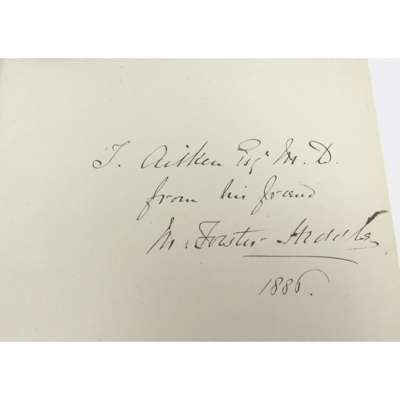 T. Aitken Esqr M.D.
from his friend
M. Forster Heddle
1886.